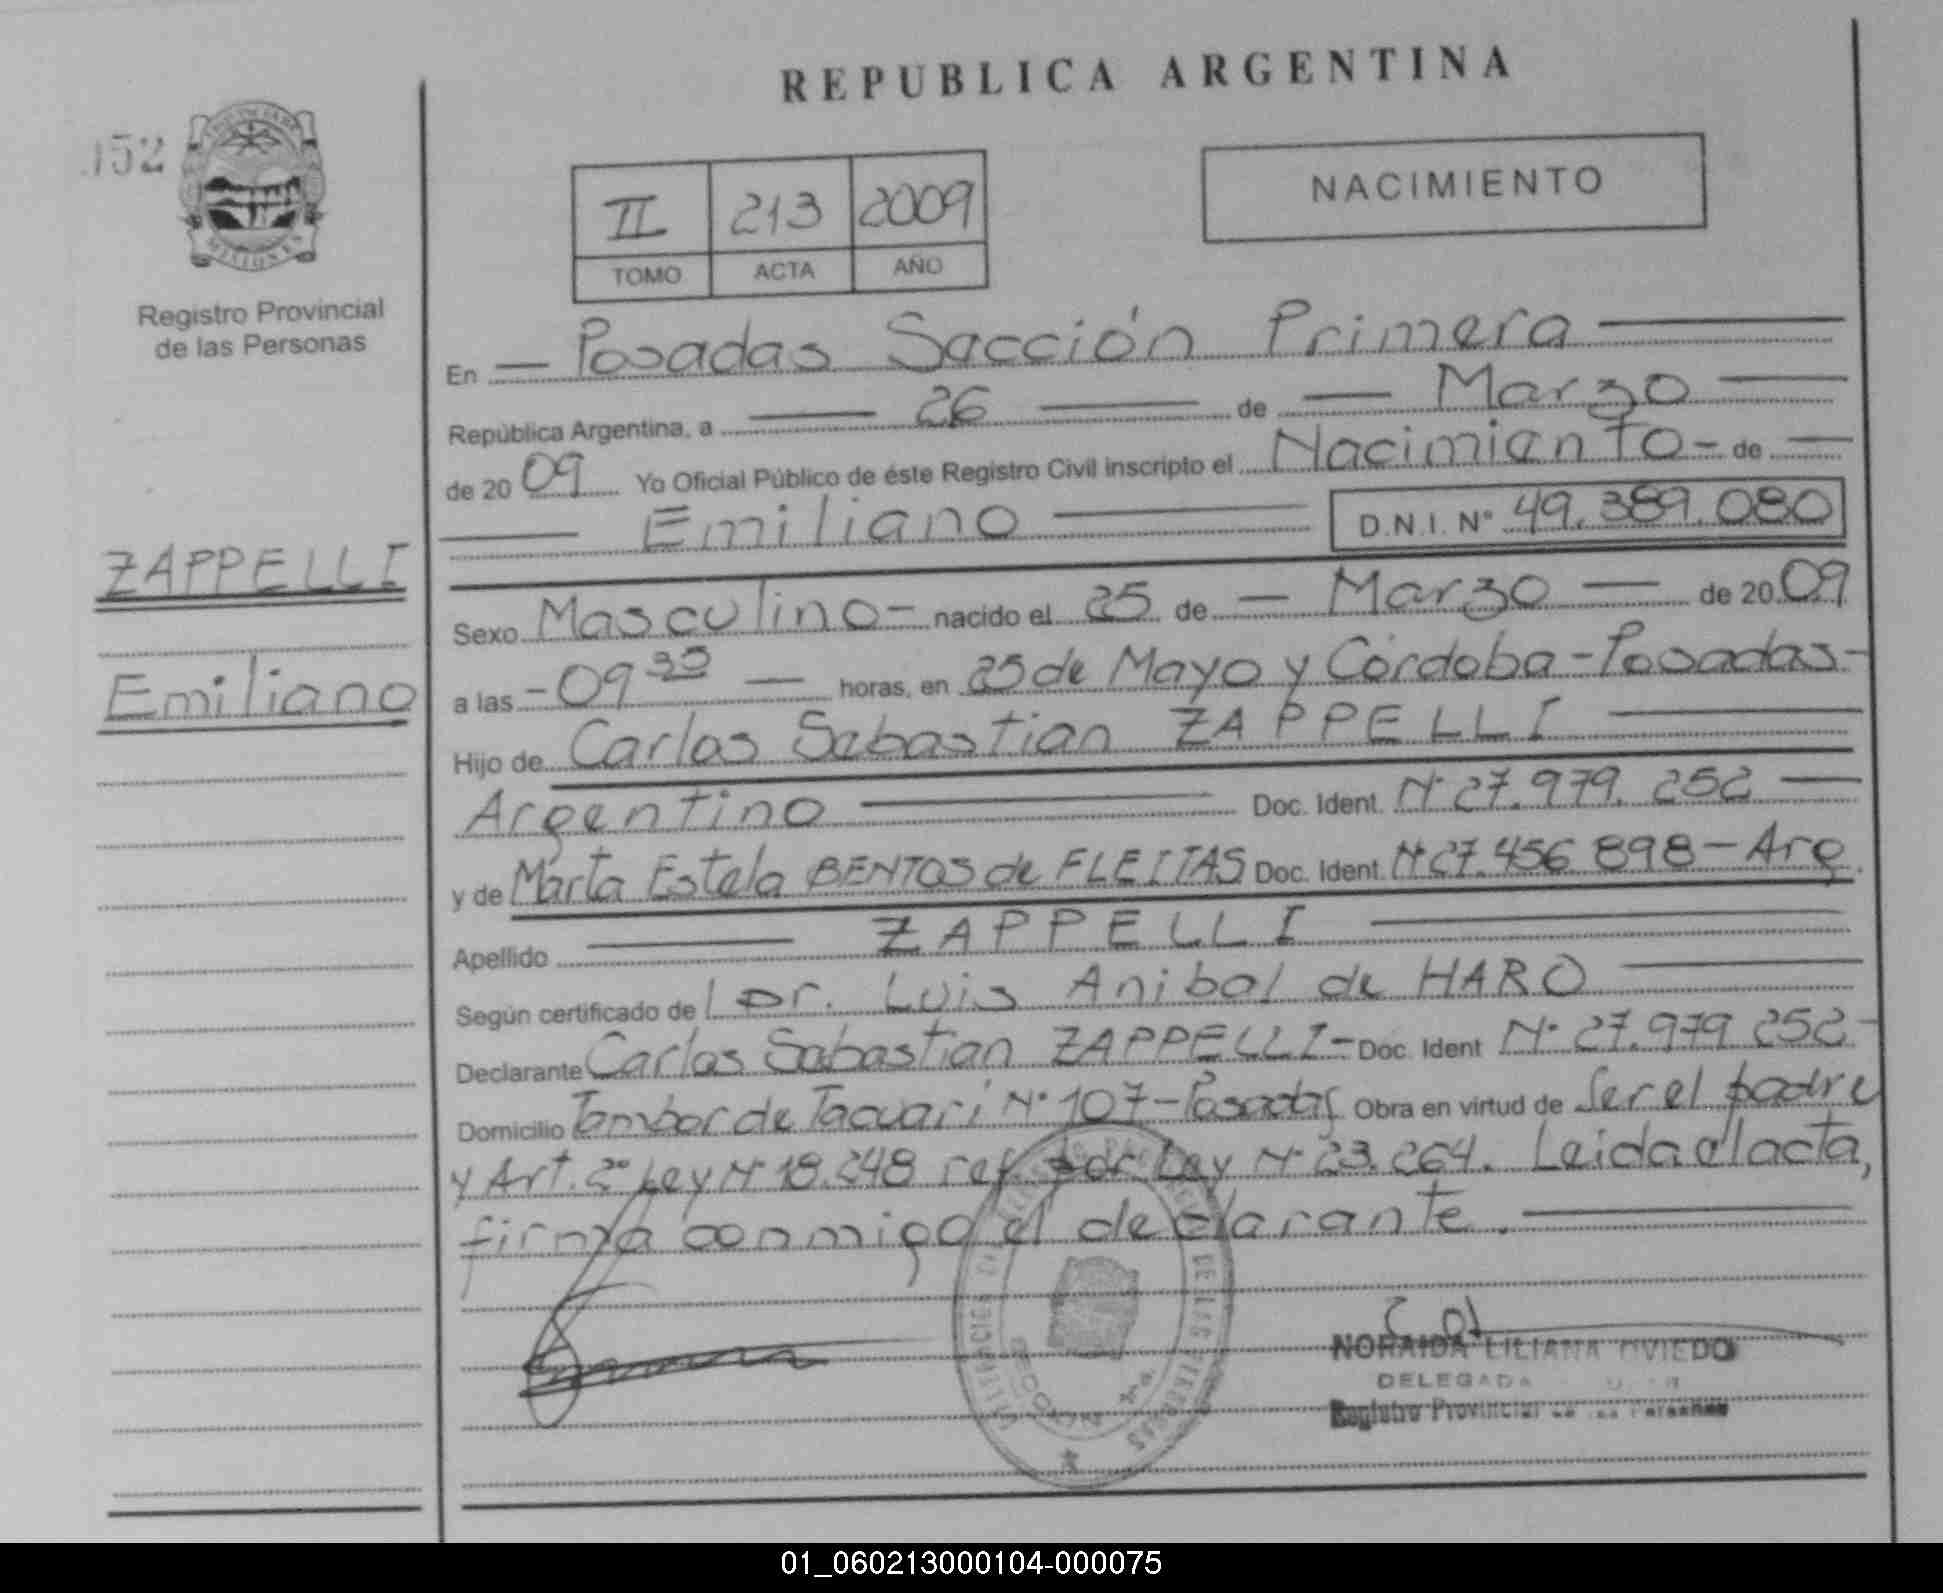 REPUBLICA ARGENTINA
152
MISIONES
Registro Provincial
de las Personas
II 213 2009
TOMO ACTA AÑO
NACIMIENTO
En Posadas Sección Primera
República Argentina, a 26 de Marzo
de 2009 Yo Oficial Público de éste Registro Civil inscripto el Nacimiento - de
Emiliano D.N.I. N° 49.389.080
ZAPPELLI
Emiliano
Sexo Masculino - nacido el 25 de - Marzo - de 2009
a las - 09 35 - horas, en 25 de Mayo y Córdoba - Posadas -
Hijo de Carlos Sebastian ZAPPELLI
Argentino Doc. Ident. N° 27.979.252
y de Marta Estela BENTOS de FLEITAS Doc. Ident. N° 27.456.898 - Arg.
Apellido ZAPPELLI
Según certificado de Dr. Luis Anibal de HARO
Declarante Carlos Sebastian ZAPPELLI - Doc. Ident N° 27.979.252 -
Domicilio Tambor de Tacuari N° 107 - Posadas Obra en virtud de Ser el padre
y Art. 2° Ley N° 18.248 ref. por Ley N° 23.264. Leida el acta,
firma conmigo el declarante.
NORAIDA LILIANA OVIEDO
DELEGADA
Registro Provincial de las Personas
01_060213000104-000075